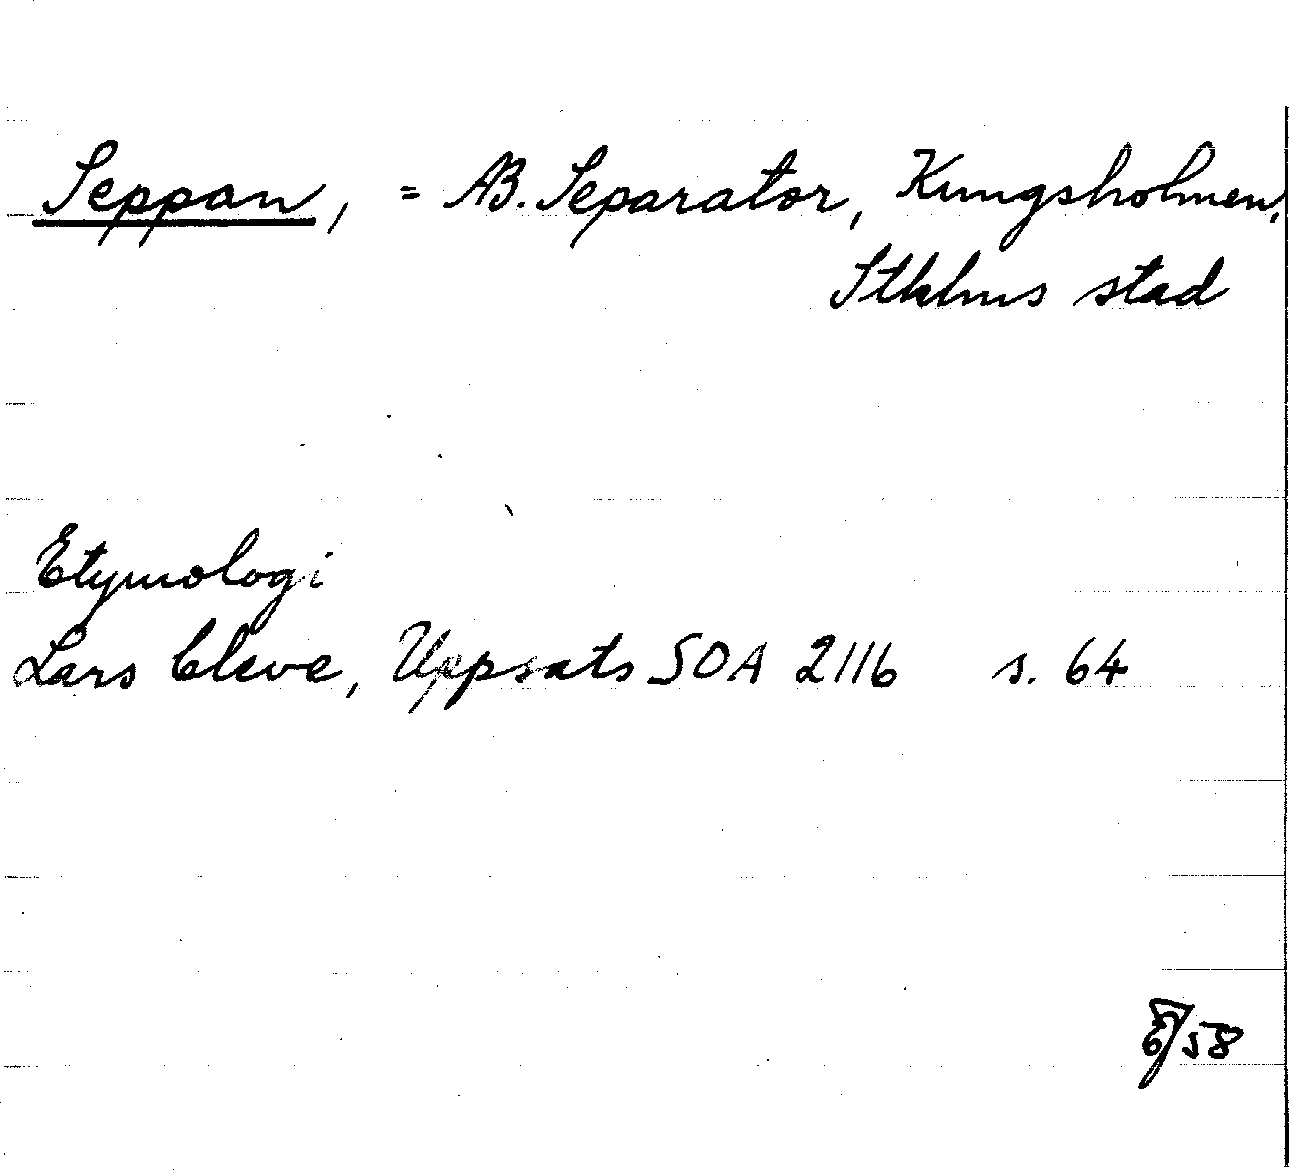 Seppan, = AB. Separator, Kungsholmen,
Stkhms stad
Etymologi
Lars Cleve, Uppsats SOA 2116 s. 64
58